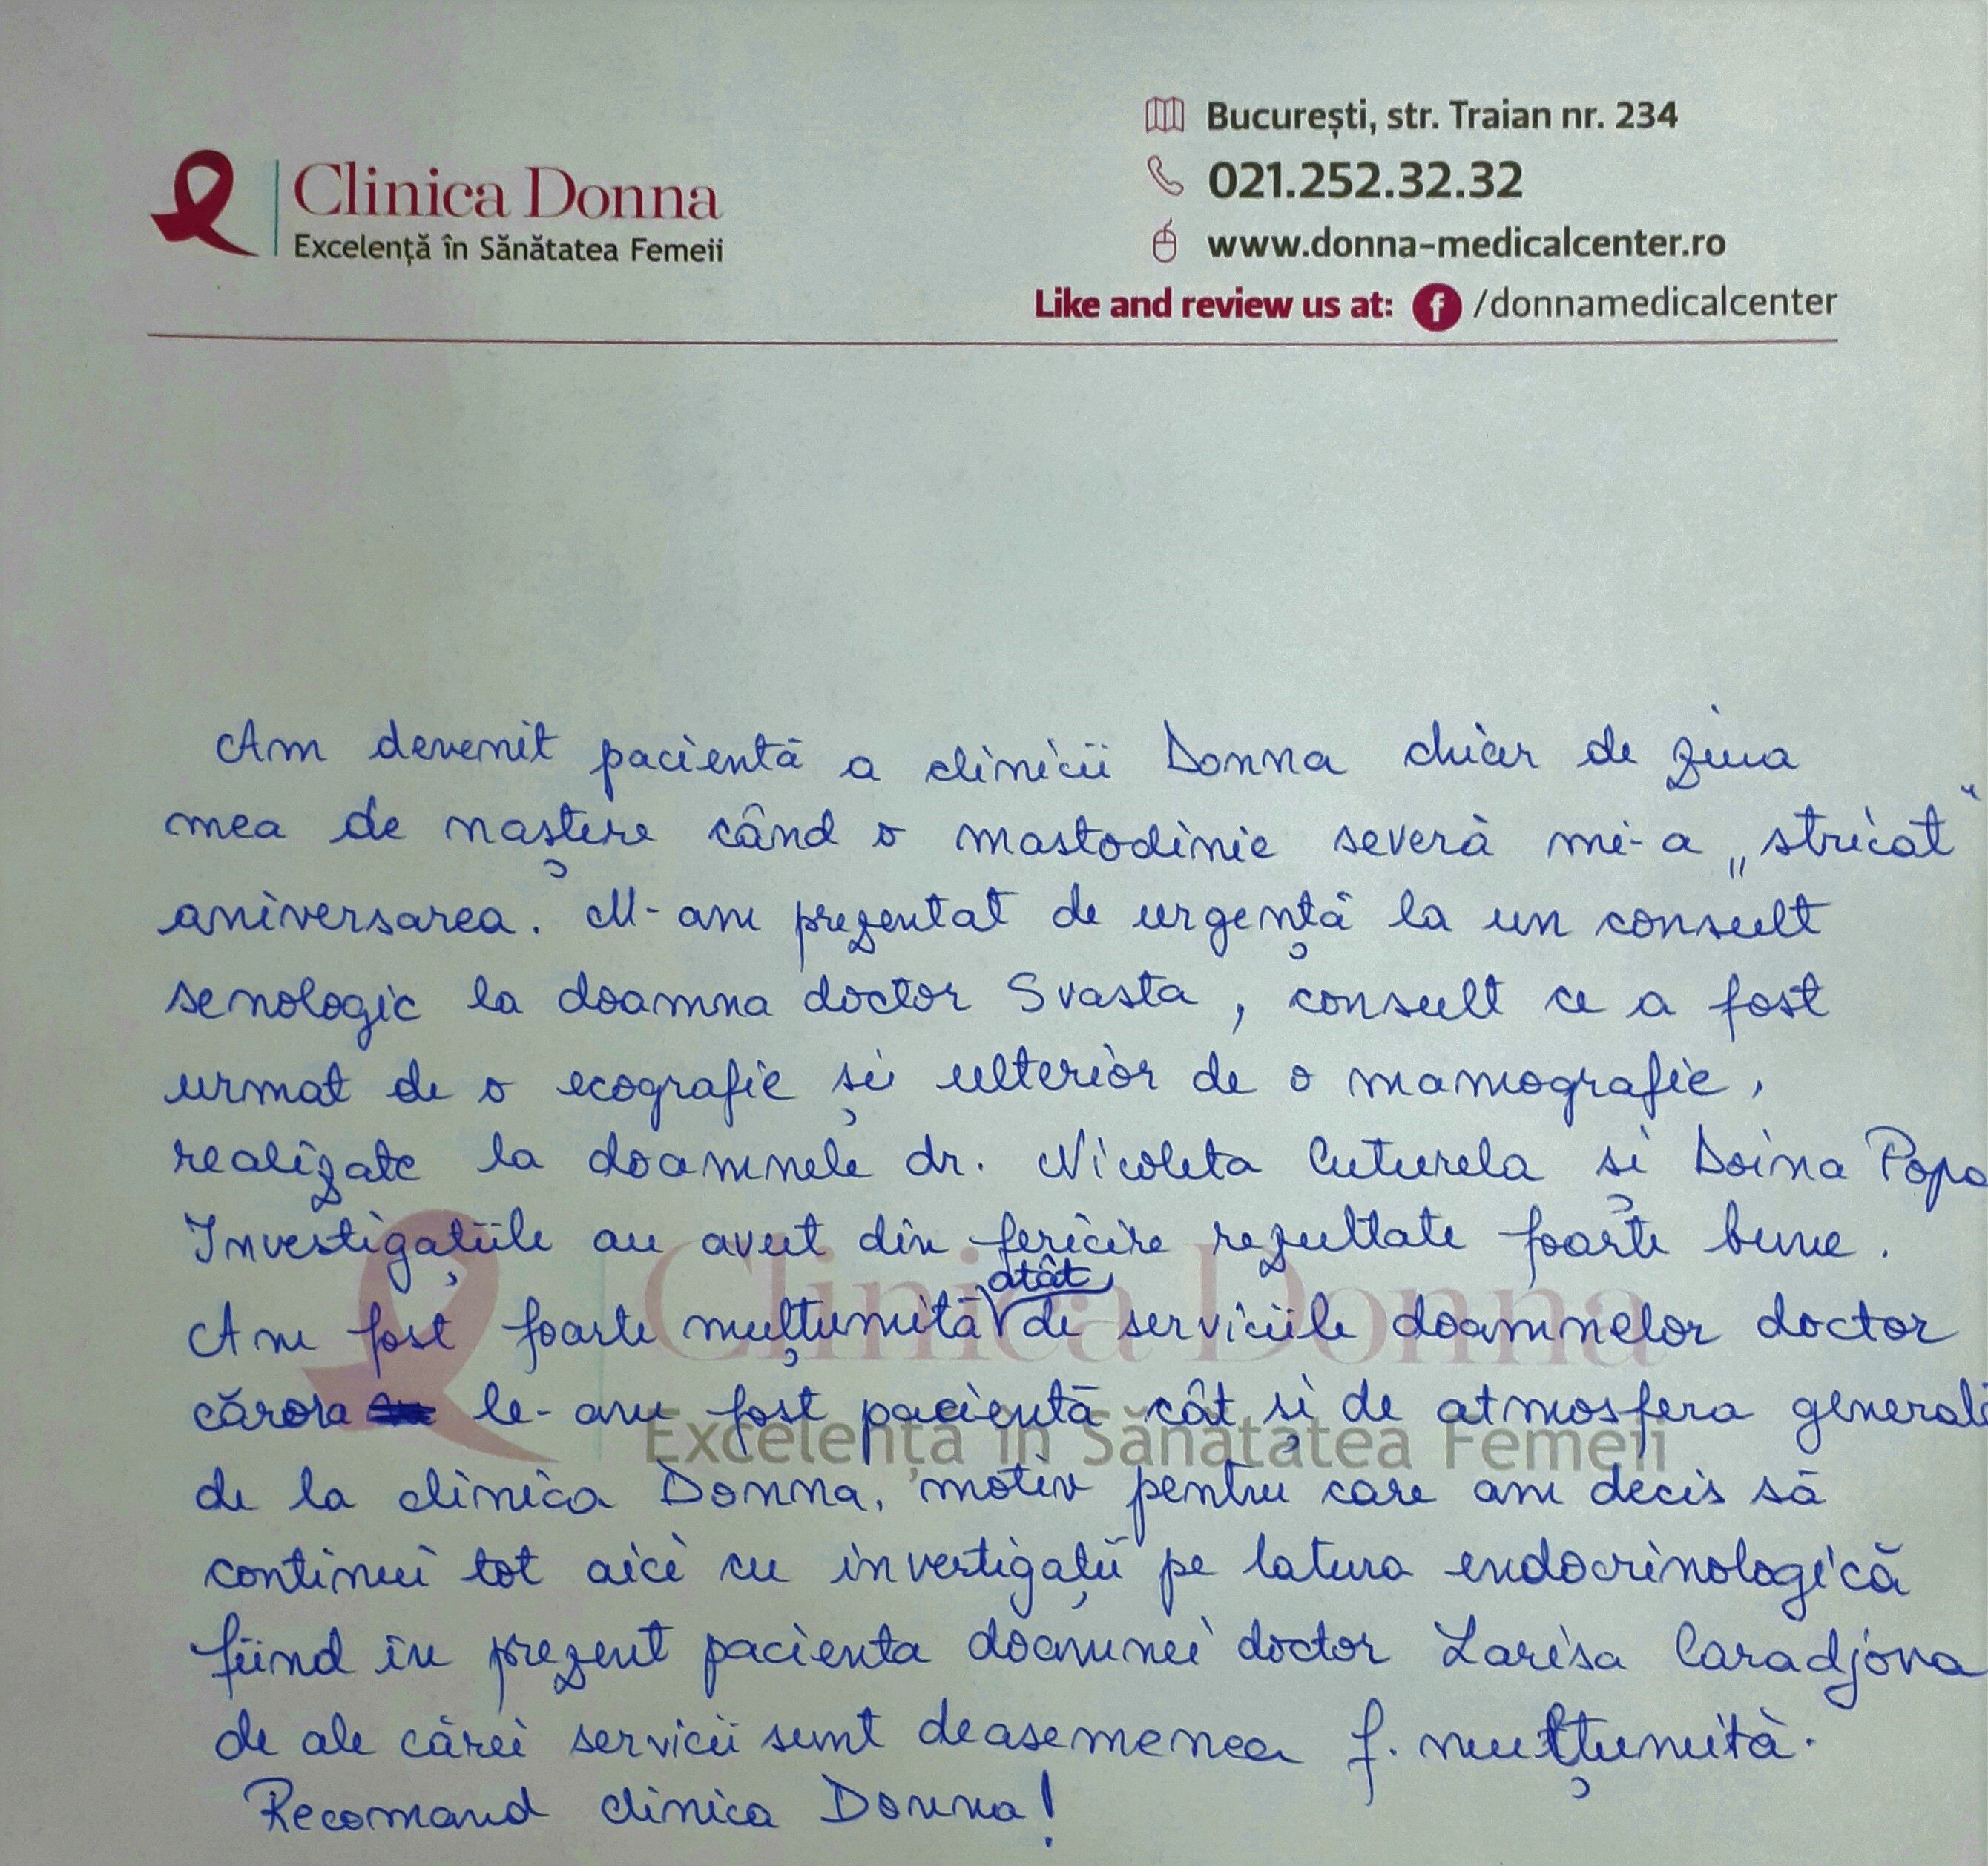 București, str. Traian nr. 234
021.252.32.32
www.donna-medicalcenter.ro
Like and review us at: /donnamedicalcenter
Clinica Donna
Excelență în Sănătatea Femeii
Am devenit pacientă a clinicii Donna chiar de ziua
mea de naștere când o mastodinie severă mi-a „stricat“
aniversarea. M-am prezentat de urgență la un consult
senologic la doamna doctor Svasta, consult ce a fost
urmat de o ecografie și ulterior de o mamografie,
realizate la doamnele dr. Nicoleta Cuturela și Doina Popa
Investigațiile au avut din fericire rezultate foarte bune.
Am fost foarte mulțumită atât de serviciile doamnelor doctor
cărora le-am fost pacientă cât și de atmosfera generală
de la clinica Donna, motiv pentru care am decis să
continui tot aici cu investigații pe latura endocrinologică
fiind în prezent pacienta doamnei doctor Larisa Caradjova
de ale cărei servicii sunt deasemenea f. mulțumită.
Recomand clinica Donna!
Clinica Donna
Excelență în Sănătatea Femeii